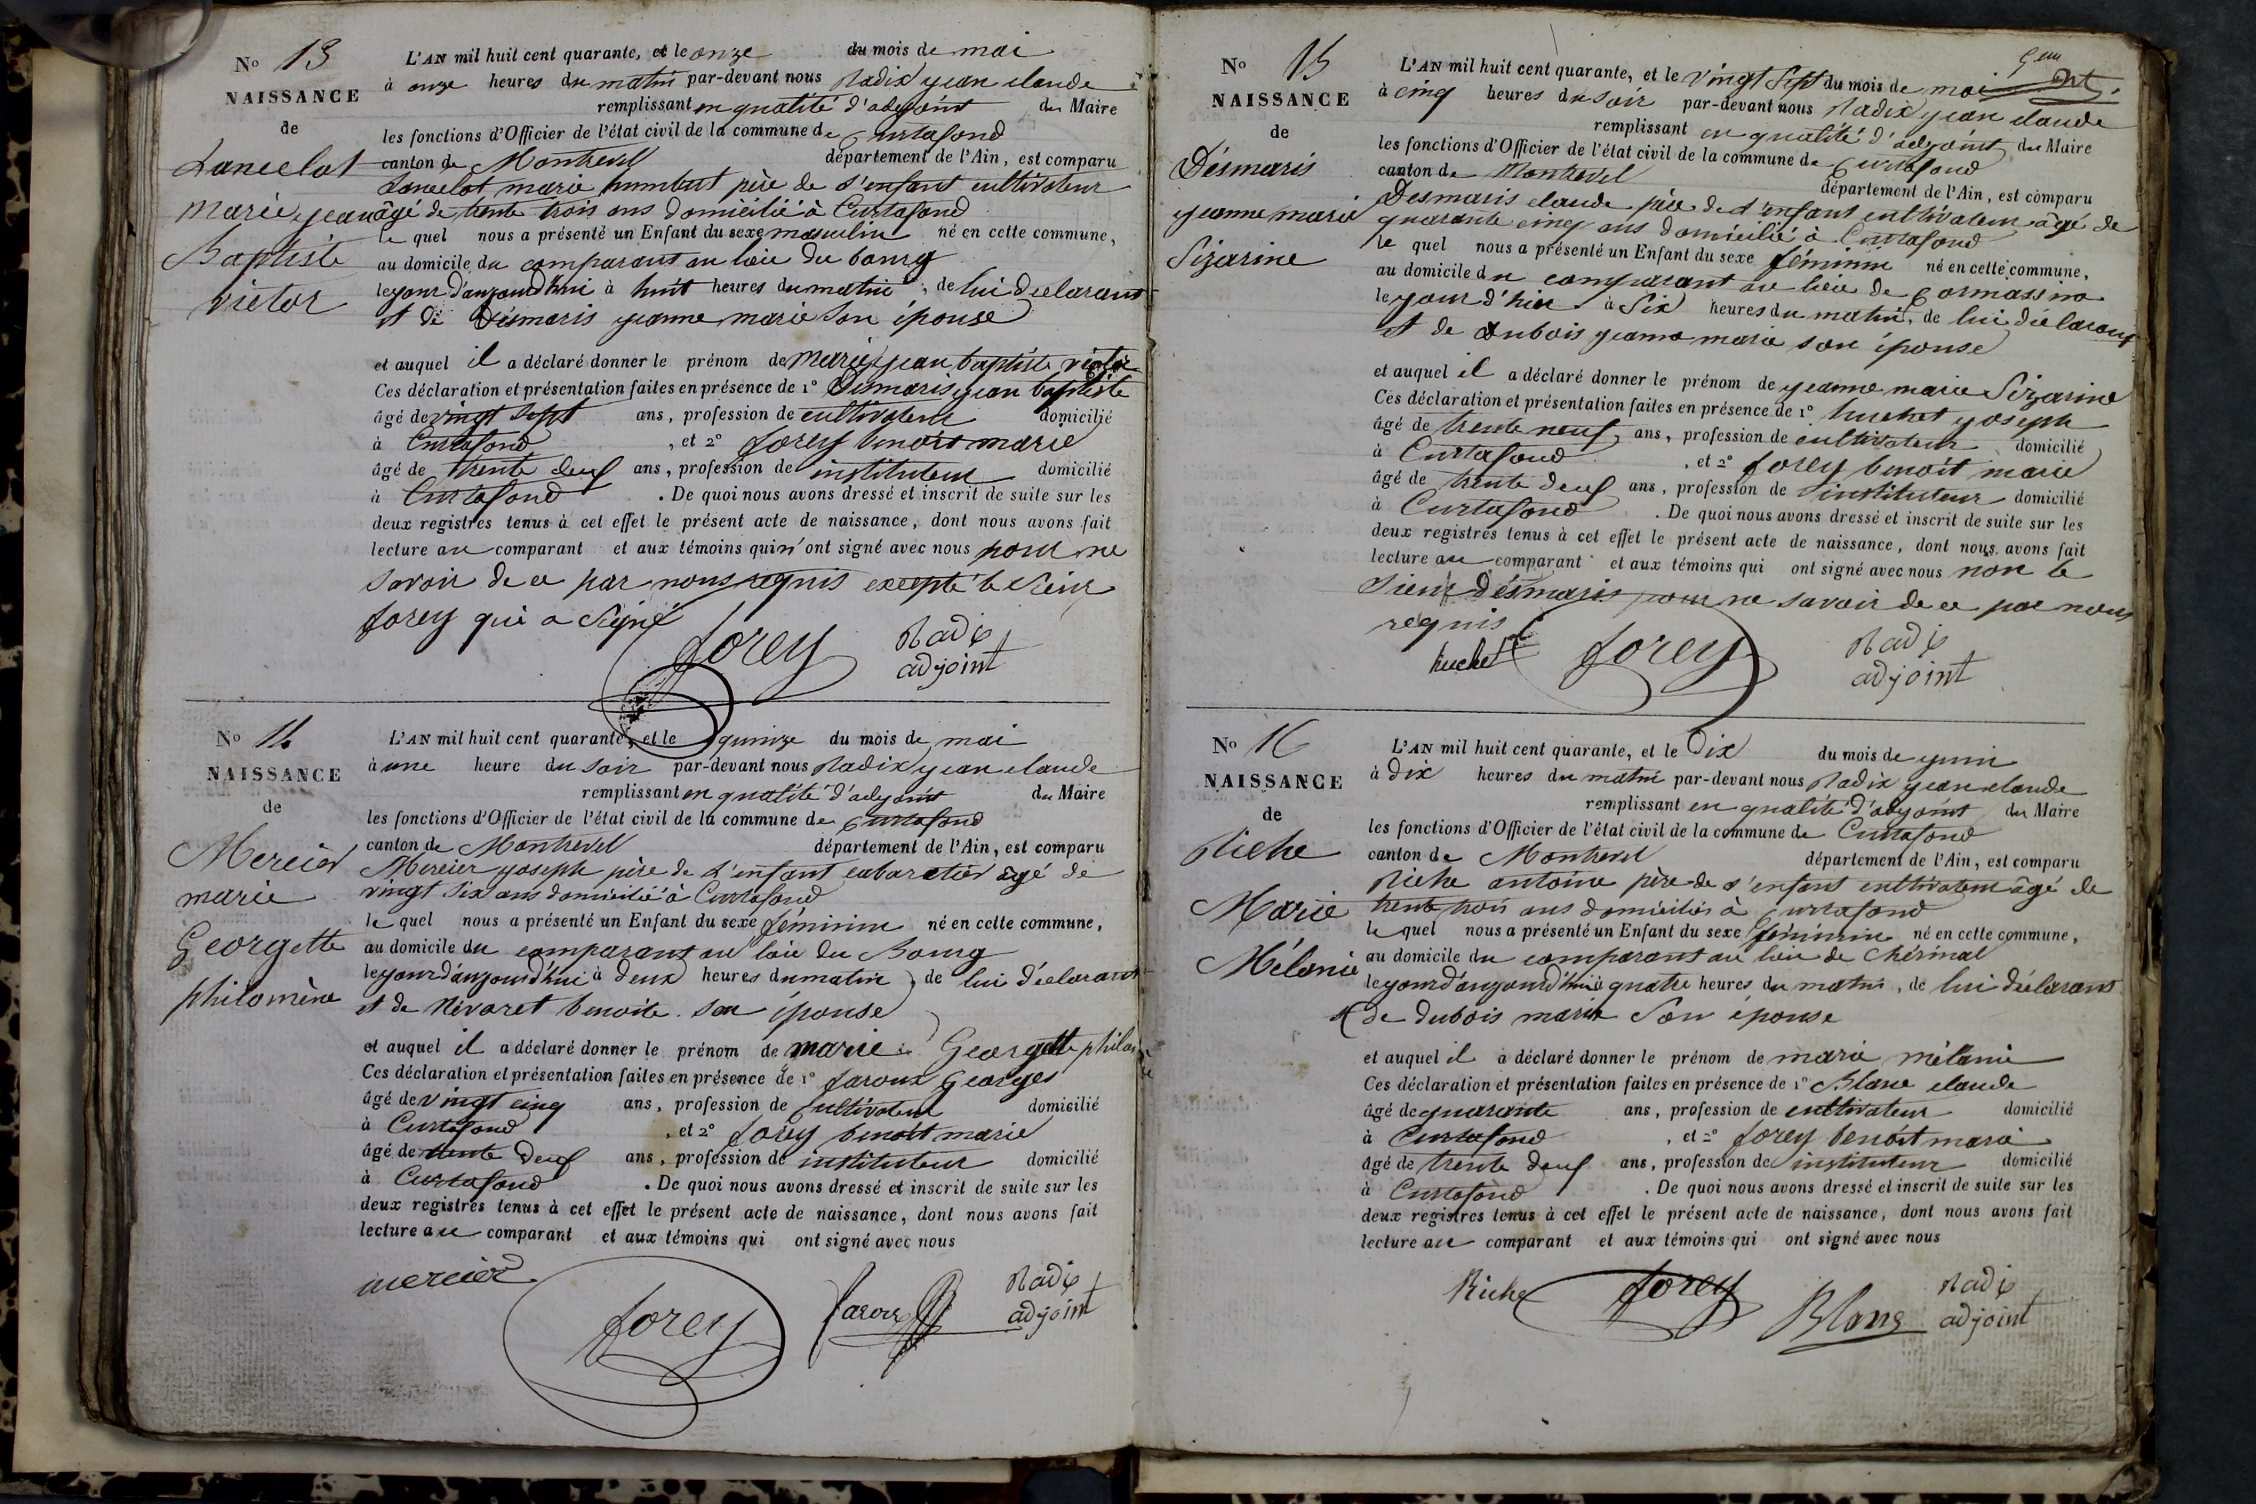 N° 13
NAISSANCE
de
Lancelot
marie jean
Baptiste
victor
L'AN mil huit cent quarante, et le onze du mois de mai
à onze heures du matin par-devant nous Radix jean claude
remplissant en qualité d'adjoint du Maire
les fonctions d'Officier de l'état civil de la commune de Curtafond
canton de Montrevel département de l'Ain, est comparu
Lancelot marie humbert père de l'enfant cultivateur
âgé de trente trois ans domicilié à Curtafond
le quel nous a présenté un Enfant du sexe masculin né en cette commune,
au domicile du comparant au lieu du bourg
le jour d'aujourd'hui à huit heures du matin, de lui déclarant
et de Désmaris jeanne marie son épouse
et auquel il a déclaré donner le prénom de marie jean baptiste victor
Ces déclaration et présentation faites en présence de 1° Désmaris jean baptiste
âgé de vingt sept ans, profession de cultivateur domicilié
à Curtafond, et 2° forey benoit marie
âgé de trente deux ans, profession de instituteur domicilié
à Curtafond. De quoi nous avons dressé et inscrit de suite sur les
deux registres tenus à cet effet le présent acte de naissance, dont nous avons fait
lecture au comparant et aux témoins qui n'ont signé avec nous pour ne
savoir de ce par nous requis excepté le sieur
forey qui a signé
forey Radix
adjoint
N° 14
NAISSANCE
de
Mercier
marie
Georgette
philomène
L'AN mil huit cent quarante, et le quinze du mois de mai
à une heure du soir par-devant nous Radix jean claude
remplissant en qualité d'adjoint du Maire
les fonctions d'Officier de l'état civil de la commune de Curtafond
canton de Montrevel département de l'Ain, est comparu
Mercier joseph père de l'enfant cabaretier agé de
vingt six ans domicilié à Curtafond
le quel nous a présenté un Enfant du sexe féminin né en cette commune,
au domicile du comparant au lieu du Bourg
le jour d'aujourd'hui à deux heures du matin, de lui déclarant
et de Névoret benoite son épouse
et auquel il a déclaré donner le prénom de marie Georgette
Ces déclaration et présentation faites en présence de 1° faroux Georges
âgé de vingt cinq ans, profession de cultivateur domicilié
à Curtafond, et 2° forey benoit marie
âgé de trente deux ans, profession de instituteur domicilié
à Curtafond. De quoi nous avons dressé et inscrit de suite sur les
deux registres tenus à cet effet le présent acte de naissance, dont nous avons fait
lecture au comparant et aux témoins qui ont signé avec nous
mercier forey faroux Radix
adjoint
N° 15
NAISSANCE
de
Désmaris
jeanne marie
Sizarine
L'AN mil huit cent quarante, et le vingt sept du mois de mai
à cinq heures du soir par-devant nous Radix jean claude
remplissant en qualité d'adjoint du Maire
les fonctions d'Officier de l'état civil de la commune de Curtafond
canton de Montrevel département de l'Ain, est comparu
Desmaris claude père de l'enfant cultivateur âgé de
quarante cinq ans domicilié à Curtafond
le quel nous a présenté un Enfant du sexe féminin né en cette commune,
au domicile du comparant au lieu de
le jour d'hier à Six heures du matin, de lui déclarant
et de dubois jeanne marie son épouse
et auquel il a déclaré donner le prénom de jeanne marie Sizarine
Ces déclaration et présentation faites en présence de 1° huchet joseph
âgé de trente neuf ans, profession de cultivateur domicilié
à Curtafond, et 2° forey benoit marie
âgé de trente deux ans, profession de instituteur domicilié
à Curtafond. De quoi nous avons dressé et inscrit de suite sur les
deux registres tenus à cet effet le présent acte de naissance, dont nous avons fait
lecture au comparant et aux témoins qui ont signé avec nous non le
sieur Désmaris pour ne savoir de ce par nous
requis
huchet forey Radix
adjoint
N° 16
NAISSANCE
de
Riche
Marie
Mélanie
L'AN mil huit cent quarante, et le Dix du mois de juin
à dix heures du matin par-devant nous Radix jean claude
remplissant en qualité d'adjoint du Maire
les fonctions d'Officier de l'état civil de la commune de Curtafond
canton de Montrevel département de l'Ain, est comparu
Riche antoine père de l'enfant cultivateur âgé de
trente trois ans domicilié à Curtafond
le quel nous a présenté un Enfant du sexe féminin né en cette commune,
au domicile du comparant au lieu de chérinal
le jour d'aujourd'hui à quatre heures du matin, de lui déclarant
et de dubois marie son épouse
et auquel il a déclaré donner le prénom de marie mélanie
Ces déclaration et présentation faites en présence de 1° Blanc claude
âgé de quarante ans, profession de cultivateur domicilié
à Curtafond, et 2° forey benoit marie
âgé de trente deux ans, profession de instituteur domicilié
à Curtafond. De quoi nous avons dressé et inscrit de suite sur les
deux registres tenus à cet effet le présent acte de naissance, dont nous avons fait
lecture au comparant et aux témoins qui ont signé avec nous
Riche forey Blanc Radix
adjoint